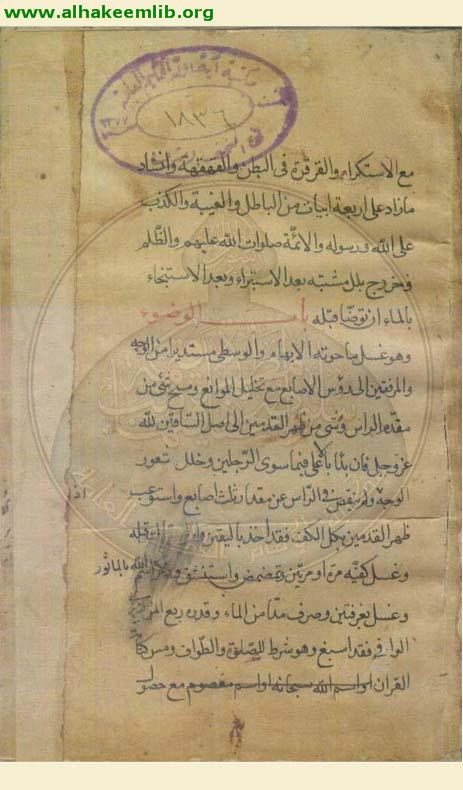 www.alhakeemlib.org
١٨٣٦
مع الاستكراه والقرقرة فى البطن والقهقهة وانشاد
مازاد على اربعة ابيات من الباطل والغيبة والكذب
على الله ورسوله والائمّة صلوات الله عليهم والظّلم
وخروج بلل مشتبه بعد الاستبراء وبعد الاستنجاء
بالماء ان توضّا قبله باب الوضوء
وهو غسل ما حوته الابهام والوسطى مستديرا من الوجه
والمرفقين الى رؤس الاصابع مع تخليل الموانع ومسح شئ من
مقدم الراس وشئ من ظهر القدمين الى اصل الساقين لله
عز وجل فان بدأ بالاعلى فيما سوى الرّجلين وخلل شعور
الوجه ولم ينقص فى الرّاس عن مقدار ثلث اصابع واستوعب
ظهر القدمين بكل الكف فقد اخذ باليقين وان قبله
وغسل كفّيه مرة او مرتين وتمضمض واستنشق الله بالماثور
وغسل بغرفتين وصرف مدّا من الماء وقدره ربع المن
الوافى فقد اسبغ وهو شرط للصلوة والطّواف ومس كتابة
القران او اسم الله سبحانه او اسم معصوم مع حصول